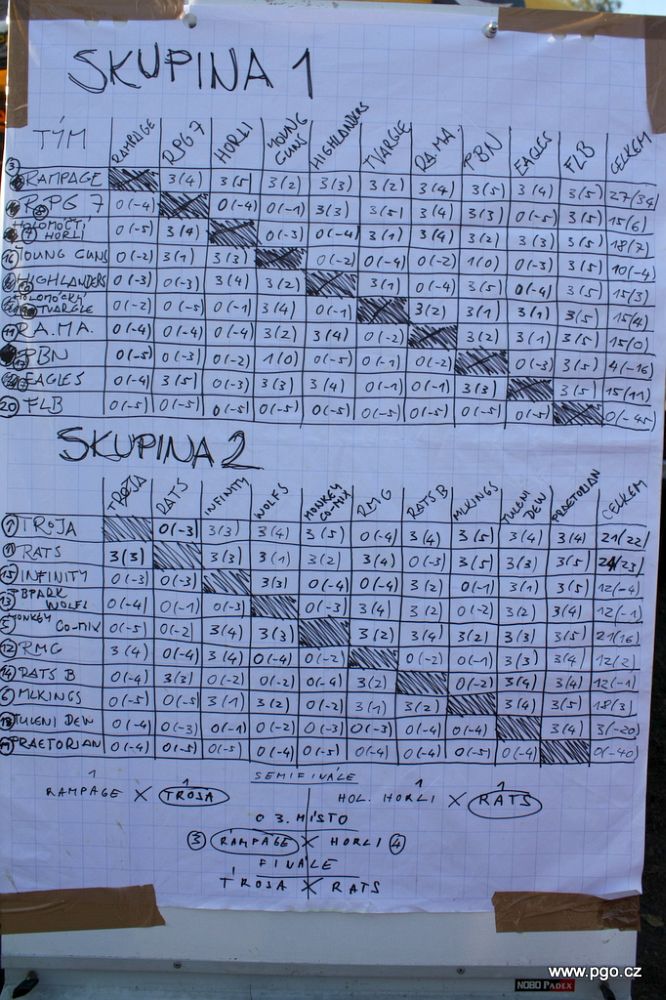 SKUPINA 1
TÝM RAMPAGE RPG 7 HORLI YOUNG GUNS HIGHLANDERS TVARGLE RA.MA. PBN EAGLES FLB CELKEM
RAMPAGE 3(4) 3(5) 3(2) 3(3) 3(2) 3(4) 3(5) 3(4) 3(5) 27(34)
RPG 7 0(-4) 0(-4) 0(-1) 3(3) 3(5) 3(4) 3(5) 0(-5) 3(5) 15(6)
HOLOMOČTÍ HORLI 0(-5) 3(4) 0(-3) 0(-4) 3(1) 3(4) 3(2) 3(3) 3(5) 18(7)
16 YOUNG GUNS 0(-2) 3(1) 3(3) 0(-2) 0(-4) 0(-2) 1(0) 0(-3) 3(5) 10(-4)
HIGHLANDERS 0(-3) 0(-3) 3(4) 3(2) 3(1) 0(-4) 3(5) 0(-4) 3(5) 15(3)
HOLOMÓCKÝ TVARGLE 0(-2) 0(-5) 0(-1) 3(4) 0(-1) 3(2) 3(1) 3(1) 3(5) 15(4)
RA.MA. 0(-4) 0(-4) 0(-4) 3(2) 3(4) 0(-2) 3(2) 3(1) 3(5) 15(0)
PBN 0(-5) 0(-3) 0(-2) 1(0) 0(-5) 0(-1) 0(-2) 0(-3) 3(5) 4(-16)
EAGLES 0(-4) 3(5) 0(-3) 3(3) 3(4) 0(-1) 0(-1) 3(3) 3(5) 15(11)
20 FLB 0(-5) 0(-5) 0(-5) 0(-5) 0(-5) 0(-5) 0(-5) 0(-5) 0(-5) 0(-45)
SKUPINA 2
TROJA RATS INFINITY WOLFS MONKEY CO-MIX RMG RATS B MLKINGS TULENI DEW PRAETORIAN CELKEM
TROJA 0(-3) 3(3) 3(4) 3(5) 0(-4) 3(4) 3(5) 3(4) 3(4) 21(22)
RATS 3(3) 3(3) 3(1) 3(2) 3(4) 0(-5) 3(5) 3(3) 3(5) 24(23)
15 INFINITY 0(-3) 0(-3) 3(3) 0(-4) 0(-4) 3(2) 0(-1) 3(1) 3(5) 12(-4)
13 BPARK WOLFS 0(-4) 0(-1) 0(-3) 0(-3) 3(4) 3(2) 0(-2) 3(2) 3(4) 12(-1)
MONKEY CO-MIX 0(-5) 0(-2) 3(4) 3(3) 3(2) 3(4) 3(2) 3(3) 3(5) 21(16)
12 RMG 3(4) 0(-4) 3(4) 0(-4) 0(-2) 0(-2) 0(-1) 3(3) 3(4) 12(2)
14 RATS B 0(-4) 3(2) 0(-2) 0(-2) 0(-4) 3(2) 0(-2) 3(4) 3(4) 12(-1)
6 MLKINGS 0(-5) 0(-5) 3(1) 3(2) 0(-2) 3(1) 3(2) 3(4) 3(5) 18(3)
TULENI DEW 0(-4) 0(-3) 0(-1) 0(-2) 0(-3) 0(-3) 0(-4) 0(-4) 3(4) 3(-20)
PRAETORIAN 0(-4) 0(-5) 0(-5) 0(-4) 0(-5) 0(-4) 0(-4) 0(-5) 0(-4) 0(-40)
SEMIFINÁLE
1 1 1 1
RAMPAGE X TROJA HOL. HORLI X RATS
O 3. MÍSTO
3 RAMPAGE X HORLI 4
FINÁLE
TROJA X RATS
www.pgo.cz
NOBO PADEX